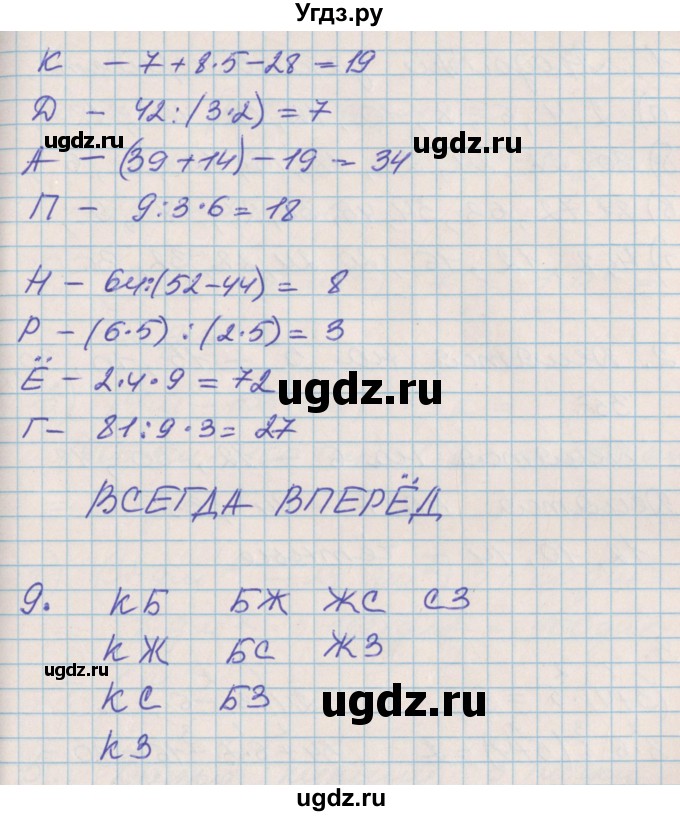 Угдз.ру
К - 7 + 8 · 5 - 28 = 19
Д - 42 : (3 · 2) = 7
ugdz.ru
ugdz.ru
А - (39 + 14) - 19 - 34
П - 9 : 3 · 6 = 18
Н - 64 : (52 - 44) = 8
Р - (6 · 5) : (2 · 5) = 3
Ё - 2 · 4 · 9 = 72
ugdz.ru
Г - 81 : 9 · 3 = 27
ВСЕГДА ВПЕРЁД
9. КБ БЖ ЖС СЗ
КЖ БС ЖЗ
ugdz.ru
КС БЗ
ugdz.ru
КЗ
ugdz.ru